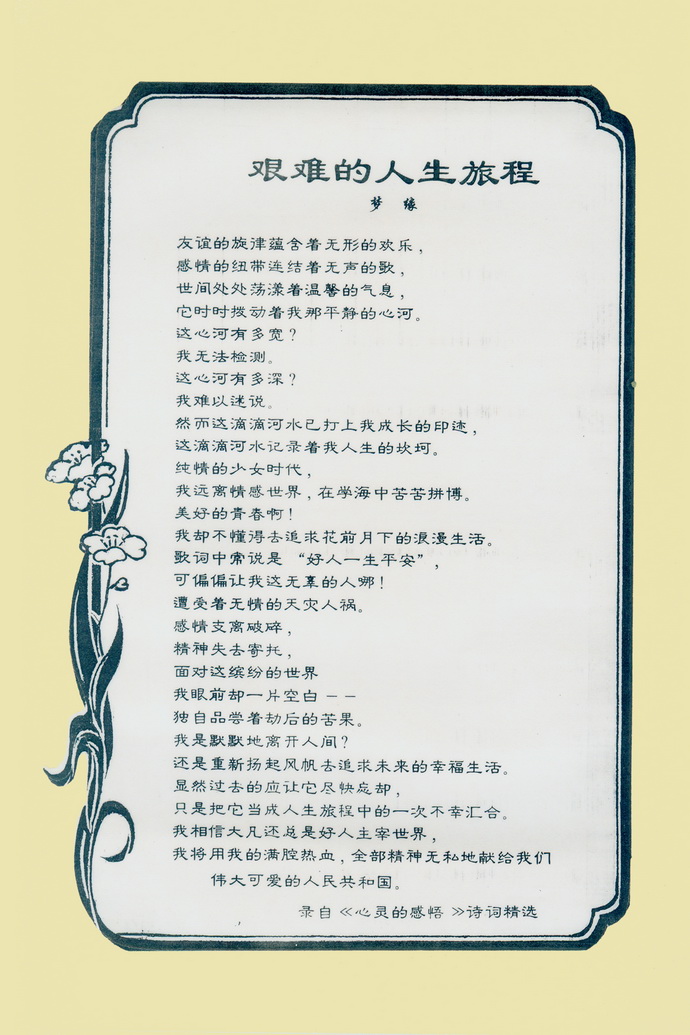 艰难的人生旅程
梦 缘
友谊的旋律蕴含着无形的欢乐，
感情的纽带连结着无声的歌，
世间处处荡漾着温馨的气息，
它时时拨动着我那平静的心河。
这心河有多宽？
我无法检测。
这心河有多深？
我难以迷说。
然而这滴滴河水已打上我成长的印迹，
这滴滴河水记录着我人生的坎坷。
纯情的少女时代，
我远离情感世界，在学海中苦苦拼博。
美好的青春啊！
我却不懂得去追求花前月下的浪漫生活。
歌词中常说是“好人一生平安”，
可偏偏让我这无辜的人哪！
遭受着无情的天灾人祸。
感情支离破碎，
精神失去寄托，
面对这缤纷的世界
我眼前却一片空白－－
独自品尝着劫后的苦果。
我是默默地离开人间？
还是重新扬起风帆去追求未来的幸福生活。
显然过去的应让它尽快忘却，
只是把它当成人生旅程中的一次不幸汇合。
我相信大凡还总是好人主宰世界，
我将用我的满腔热血，全部精神无私地献给我们
伟大可爱的人民共和国。
录自《心灵的感悟》诗词精选